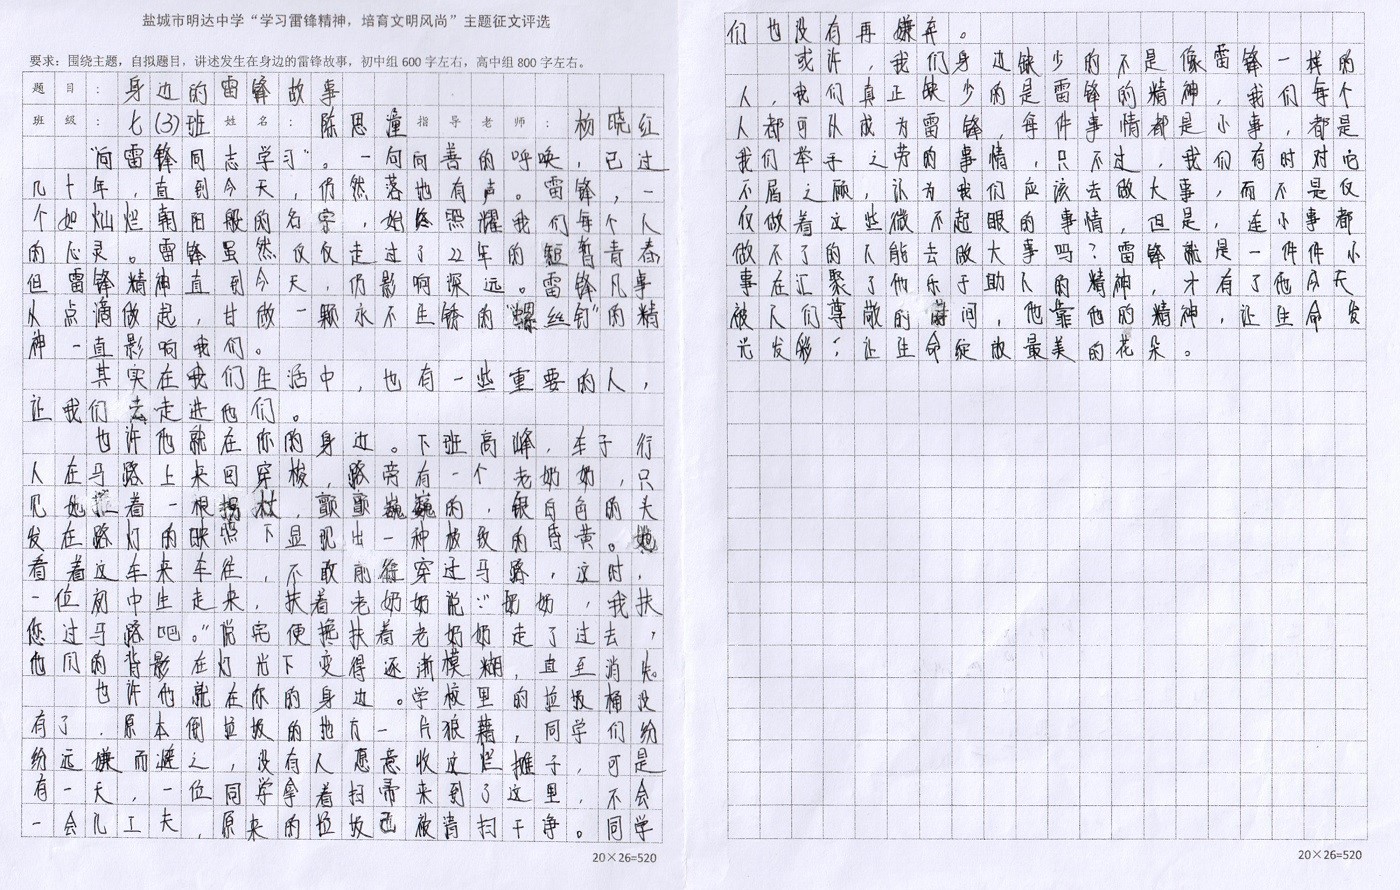 盐城市明达中学“学习雷锋精神，培育文明风尚”主题征文评选
要求：围绕主题，自拟题目，讲述发生在身边的雷锋故事，初中组600字左右，高中组800字左右。
题目：身边的雷锋故事
班级：七(3)班 姓名：陈思潼 指导老师：杨晓红
“向雷锋同志学习”。一句向善的呼唤，已过
几十年，直到今天，仍然落地有声。雷锋，一
个如灿烂朝阳般的名字，始终照耀我们每个人
的心灵。雷锋虽然仅仅走过了22年的短暂青春，
但雷锋精神直到今天，仍影响深远。雷锋凡事
从点滴做起，甘做一颗永不生锈的“螺丝钉”的精
神一直影响我们。
其实在我们生活中，也有一些重要的人，
让我们去走进他们。
也许他就在你的身边。下班高峰，车子行
人在马路上来回穿梭，路旁有一个老奶奶，只
见她拄着一根拐杖，颤颤巍巍的，银白色的头
发在路灯的映照下显现出一种极致的昏黄。她
看着这车来车往，不敢前往穿过马路，这时，
一位初中生走来，扶着老奶奶说：“奶奶，我扶
您过马路吧。”说完便搀扶着老奶奶走了过去，
他们的背影在灯光下变得逐渐模糊，直至消失。
也许他就在你的身边。学校里的垃圾桶没
有了，原本倒垃圾的地方一片狼藉，同学们纷
纷远嫌而避之，没有人愿意收这烂摊子，可是
有一天，一位同学拿着扫帚来到了这里，不会
一会儿工夫，原来的垃圾已被清扫干净。同学
20×26=520
们也没有再嫌弃。
或许，我们身边缺少的不是像雷锋一样的
人，我们真正缺少的是雷锋的精神，我们每个
人都可以成为雷锋，每件事情都是小事，都是
我们举手之劳的事情，只不过，我们有时对它
不屑之顾，认为我们应该去做大事，而不是仅
仅做着这些微不起眼的事情，但是，连小事都
做不了的人能去做大事吗？雷锋就是一件件小
事在汇聚了他乐于助人的精神，才有了他今天
被人们尊敬的瞬间，他靠他的精神，让生命发
光发彩；让生命绽放最美的花朵。
20×26=520